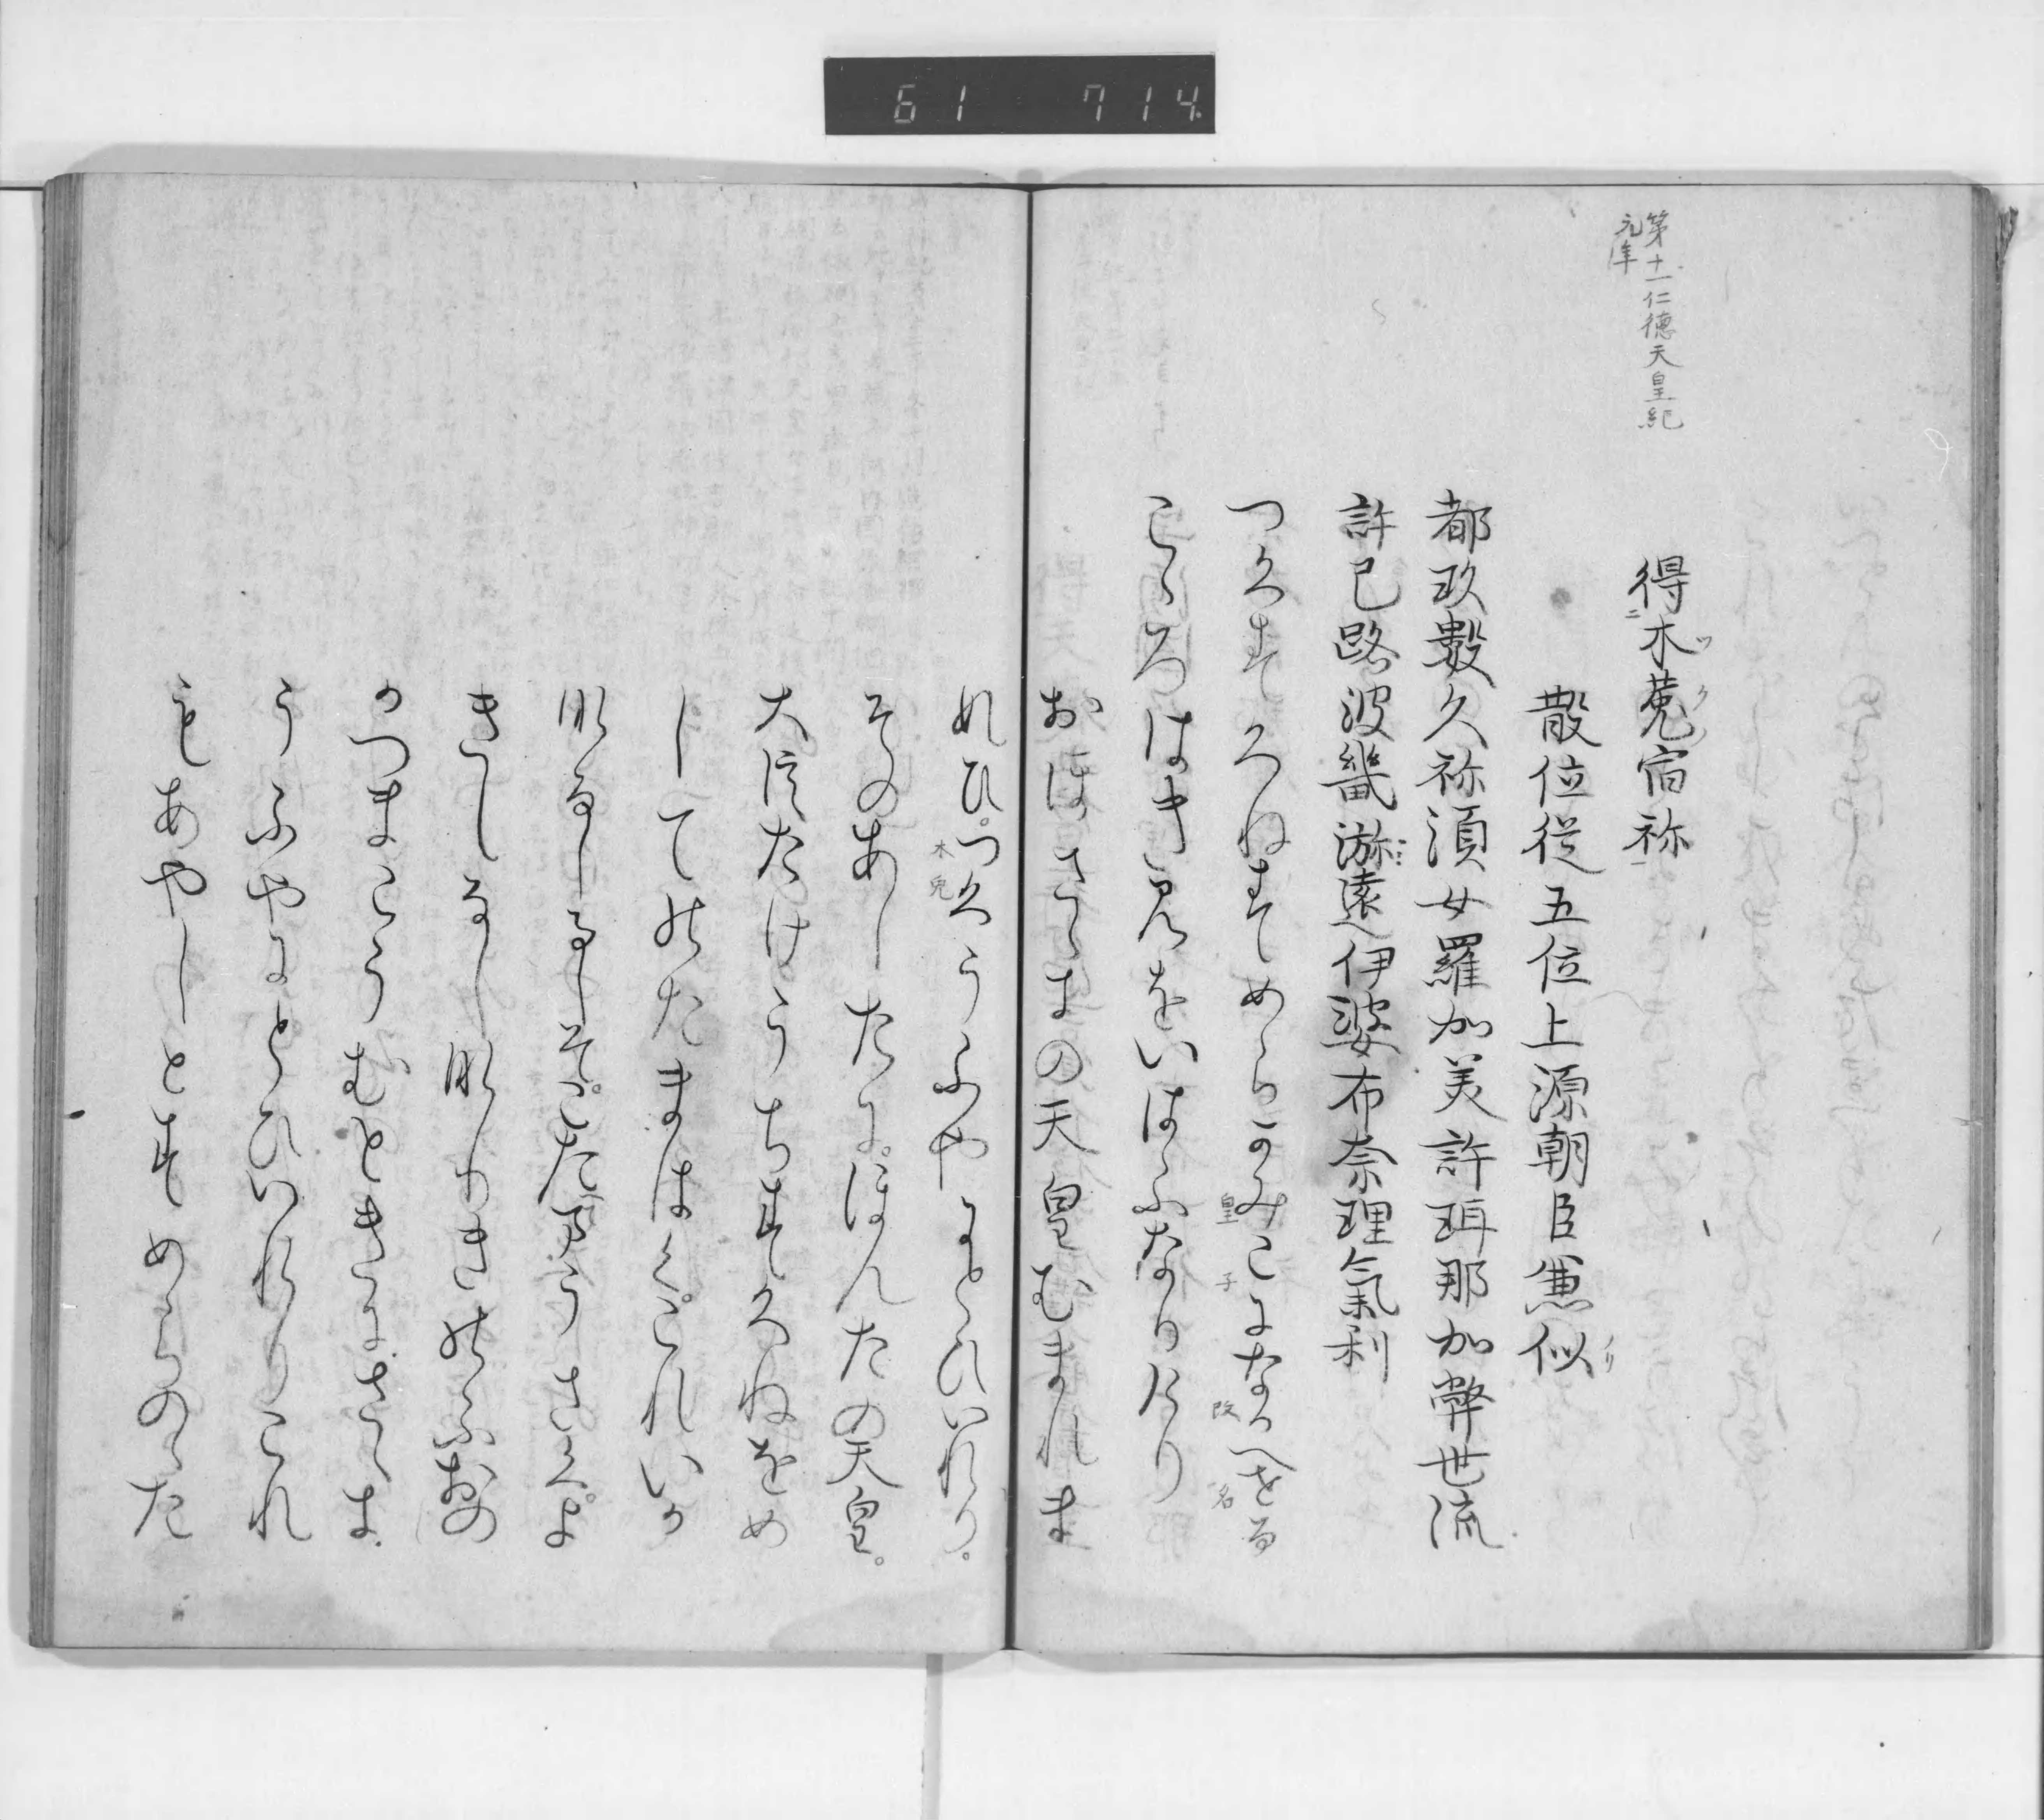 61 714
第十一仁徳天皇紀
元年
得木菟宿祢
散位従五位上源朝臣兼似
都玖數久祢須女羅加美許珥那加弊世流
許己路波畿瀰遠伊婆布奈理氣利
つくすくねすめらかみこになかへせる
こゝろはきみをいはふなりけり
おほさゝきの天皇むまれま
れひ。つくうふやにとひいれり。
そのあしたに。ほんたの天皇。
大臣たけうちすくねをめ
してのたまはく。これいか
なるしるしそ。こたへまうさく。よ
きしるしなりきのふおの
かつまこうむときにさま
うふやにとひいれりこれ
もあやしとすめらのた